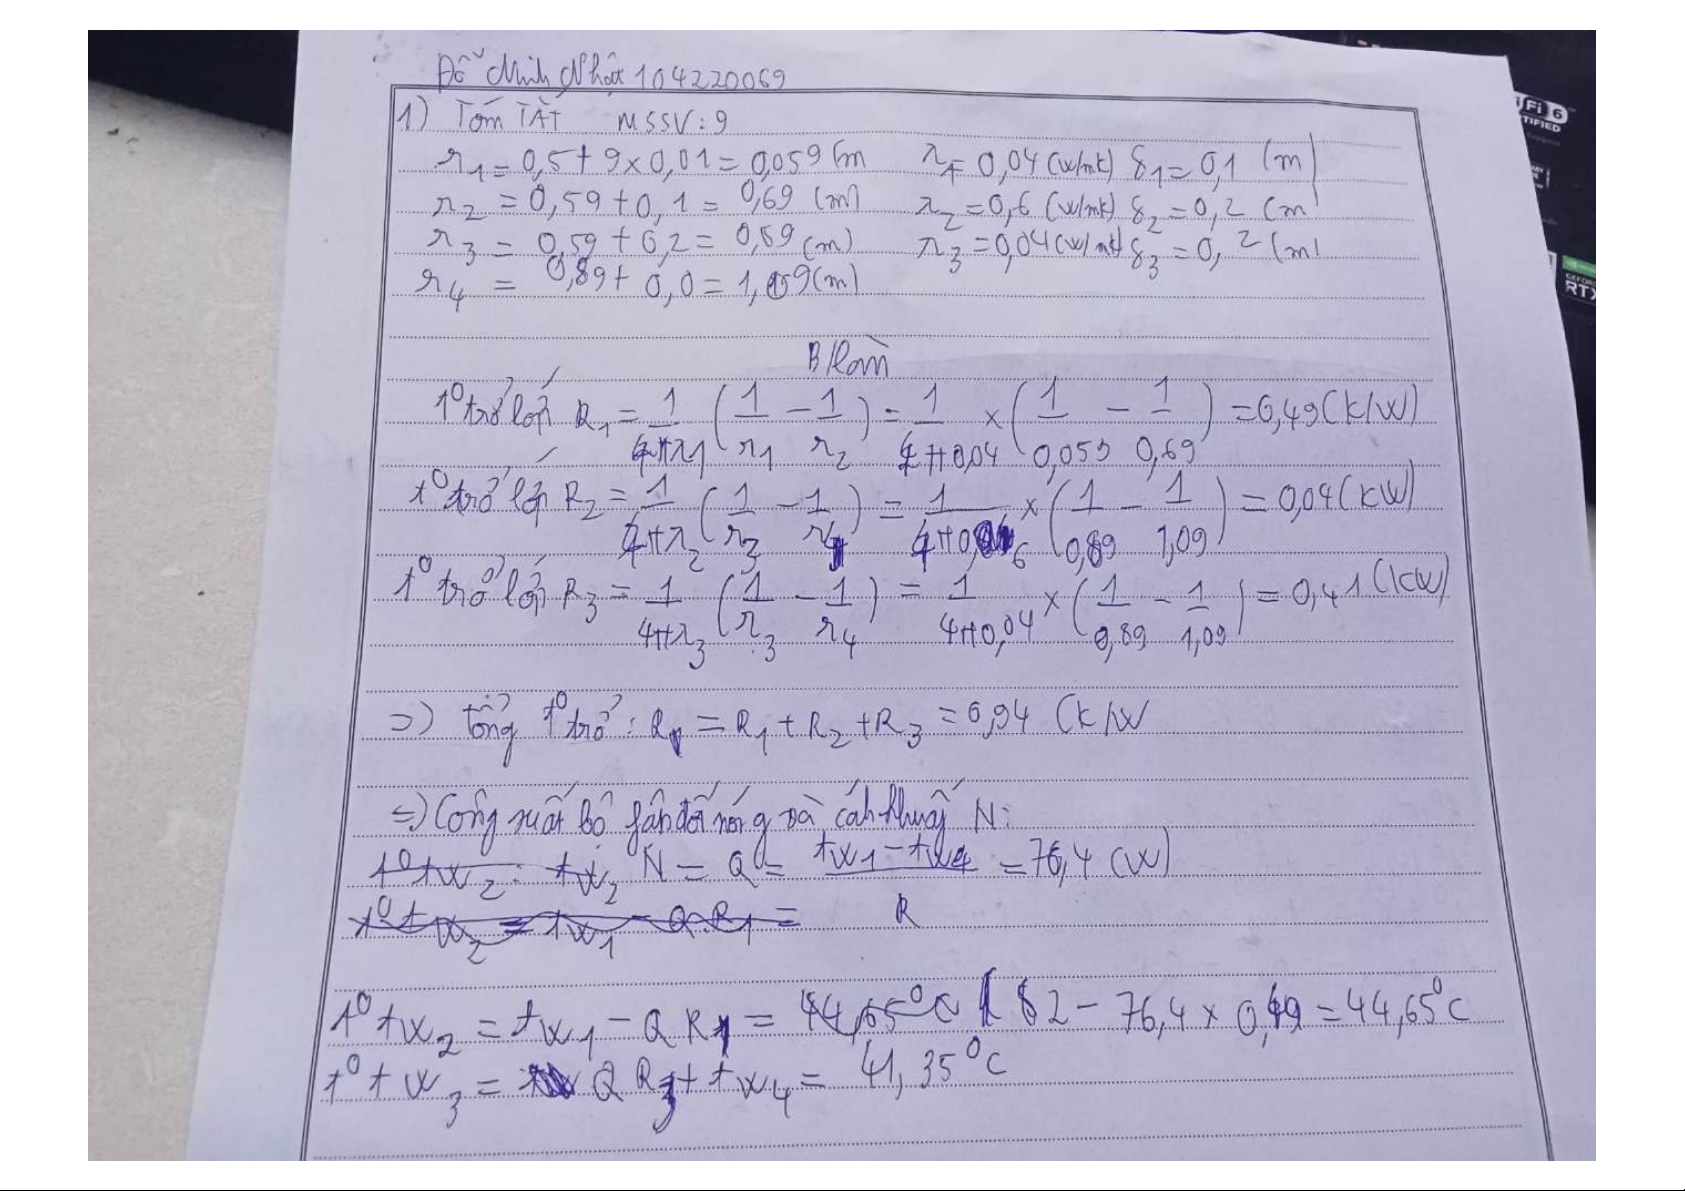 Đỗ Minh Nhật 104220069
1) TÓM TẮT MSSV: 9
r1 = 0,5 + 9 x 0,01 = 0,059 (m λ1 = 0,04 (w/mk) δ1 = 0,1 (m)
r2 = 0,59 + 0,1 = 0,69 (m) λ2 = 0,6 (w/mk) δ2 = 0,2 (m
r3 = 0,59 + 0,2 = 0,89 (m) λ3 = 0,04 (w/mk) δ3 = 0,2 (m)
r4 = 0,89 + 0,0 = 1,09 (m)
B/làm
t° trở lớp R1 = 1/4πλ1 (1/r1 - 1/r2) = 1/4π0,04 x (1/0,059 - 1/0,69) = 0,49 (K/W)
t° trở lớp R2 = 1/4πλ2 (1/r3 - 1/r4) = 1/4π0,6 x (1/0,89 - 1/1,09) = 0,04 (KW)
t° trở lớp R3 = 1/4πλ3 (1/r3 - 1/r4) = 1/4π0,04 x (1/0,89 - 1/1,09) = 0,41 (KW)
=> tổng t° trở: R = R1 + R2 + R3 = 0,94 (K/W
=> Công suất bộ phận đốt nóng và cánh khuấy N:
t° tw2: tw2 N = Q = tw1 - tw4 / R = 76,4 (W)
t° tw2 = tw1 - Q.R1 =
t° tw2 = tw1 - Q R1 = 44,65°C ( 82 - 76,4 x 0,49 = 44,65°C
t° tw3 = Q R3 + tw4 = 41,35°C
Fi 6
TIFIED
GEFORC
RTX